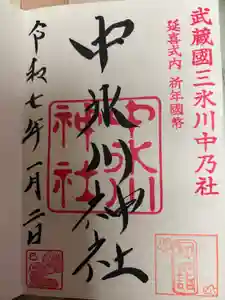 武蔵國三氷川中乃社
延喜式内 祈年國幣
中氷川神社
中氷川神社
令和七年一月二日